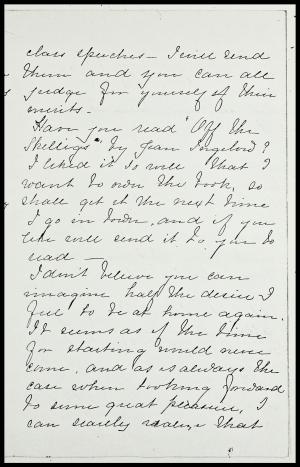 class speeches - I will send
them and you can all
judge for yourself of their
merits -
Have you read "Off the
Skelligs" by Jean Ingelow?
I liked it so well that I
want to own the book, so
shall get it the next time
I go in town, and if you
like will send it to you to
read -
I don't believe you can
imagine half the desire I
feel to be at home again.
It seems as if the time
for starting would never
come, and as is always the
case when looking forward
to some great pleasure, I
can scarcely realize that